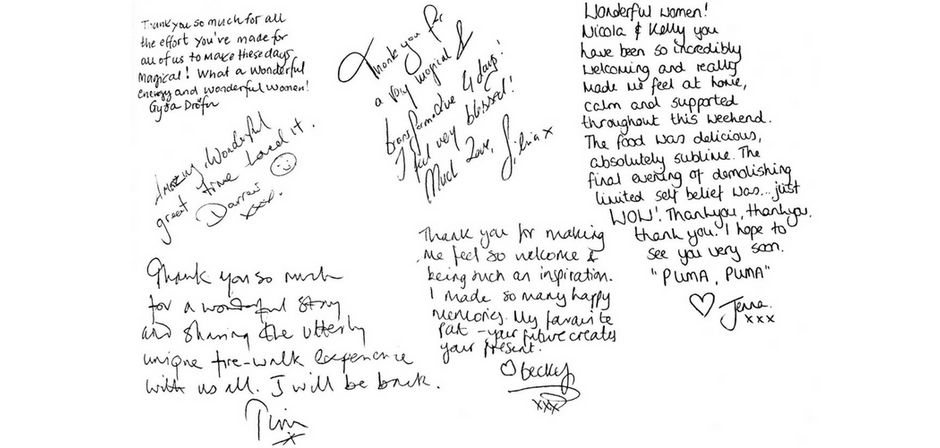 Thank you so much for all
the effort you've made for
all of us to make these days
magical! What a wonderful
energy and wonderful women!
Gyða Dröfn
Amazing, Wonderful
great time Loved it.
Darran
xxx.
Thank you for
a very magical &
transformative 4 days!
I feel very blessed!
Much Love, Silvia x
Wonderful women!
Nicola & Kelly you
have been so incredibly
welcoming and really
made me feel at home,
calm and supported
throughout this weekend.
The food was delicious,
absolutely sublime. The
final evening of demolishing
limited self belief was... just
WOW! Thankyou, thankyou,
thank you. I hope to
see you very soon.
"PUMA, PUMA"
Jenna
xxx
Thank you so much
for a wonderful stay
and sharing the utterly
unique fire-walk experience
with us all. I will be back.
Tim
x
Thank you for making
me feel so welcome &
being such an inspiration.
I made so many happy
memories. My favourite
part - your future creates
your present.
Becky
xxx